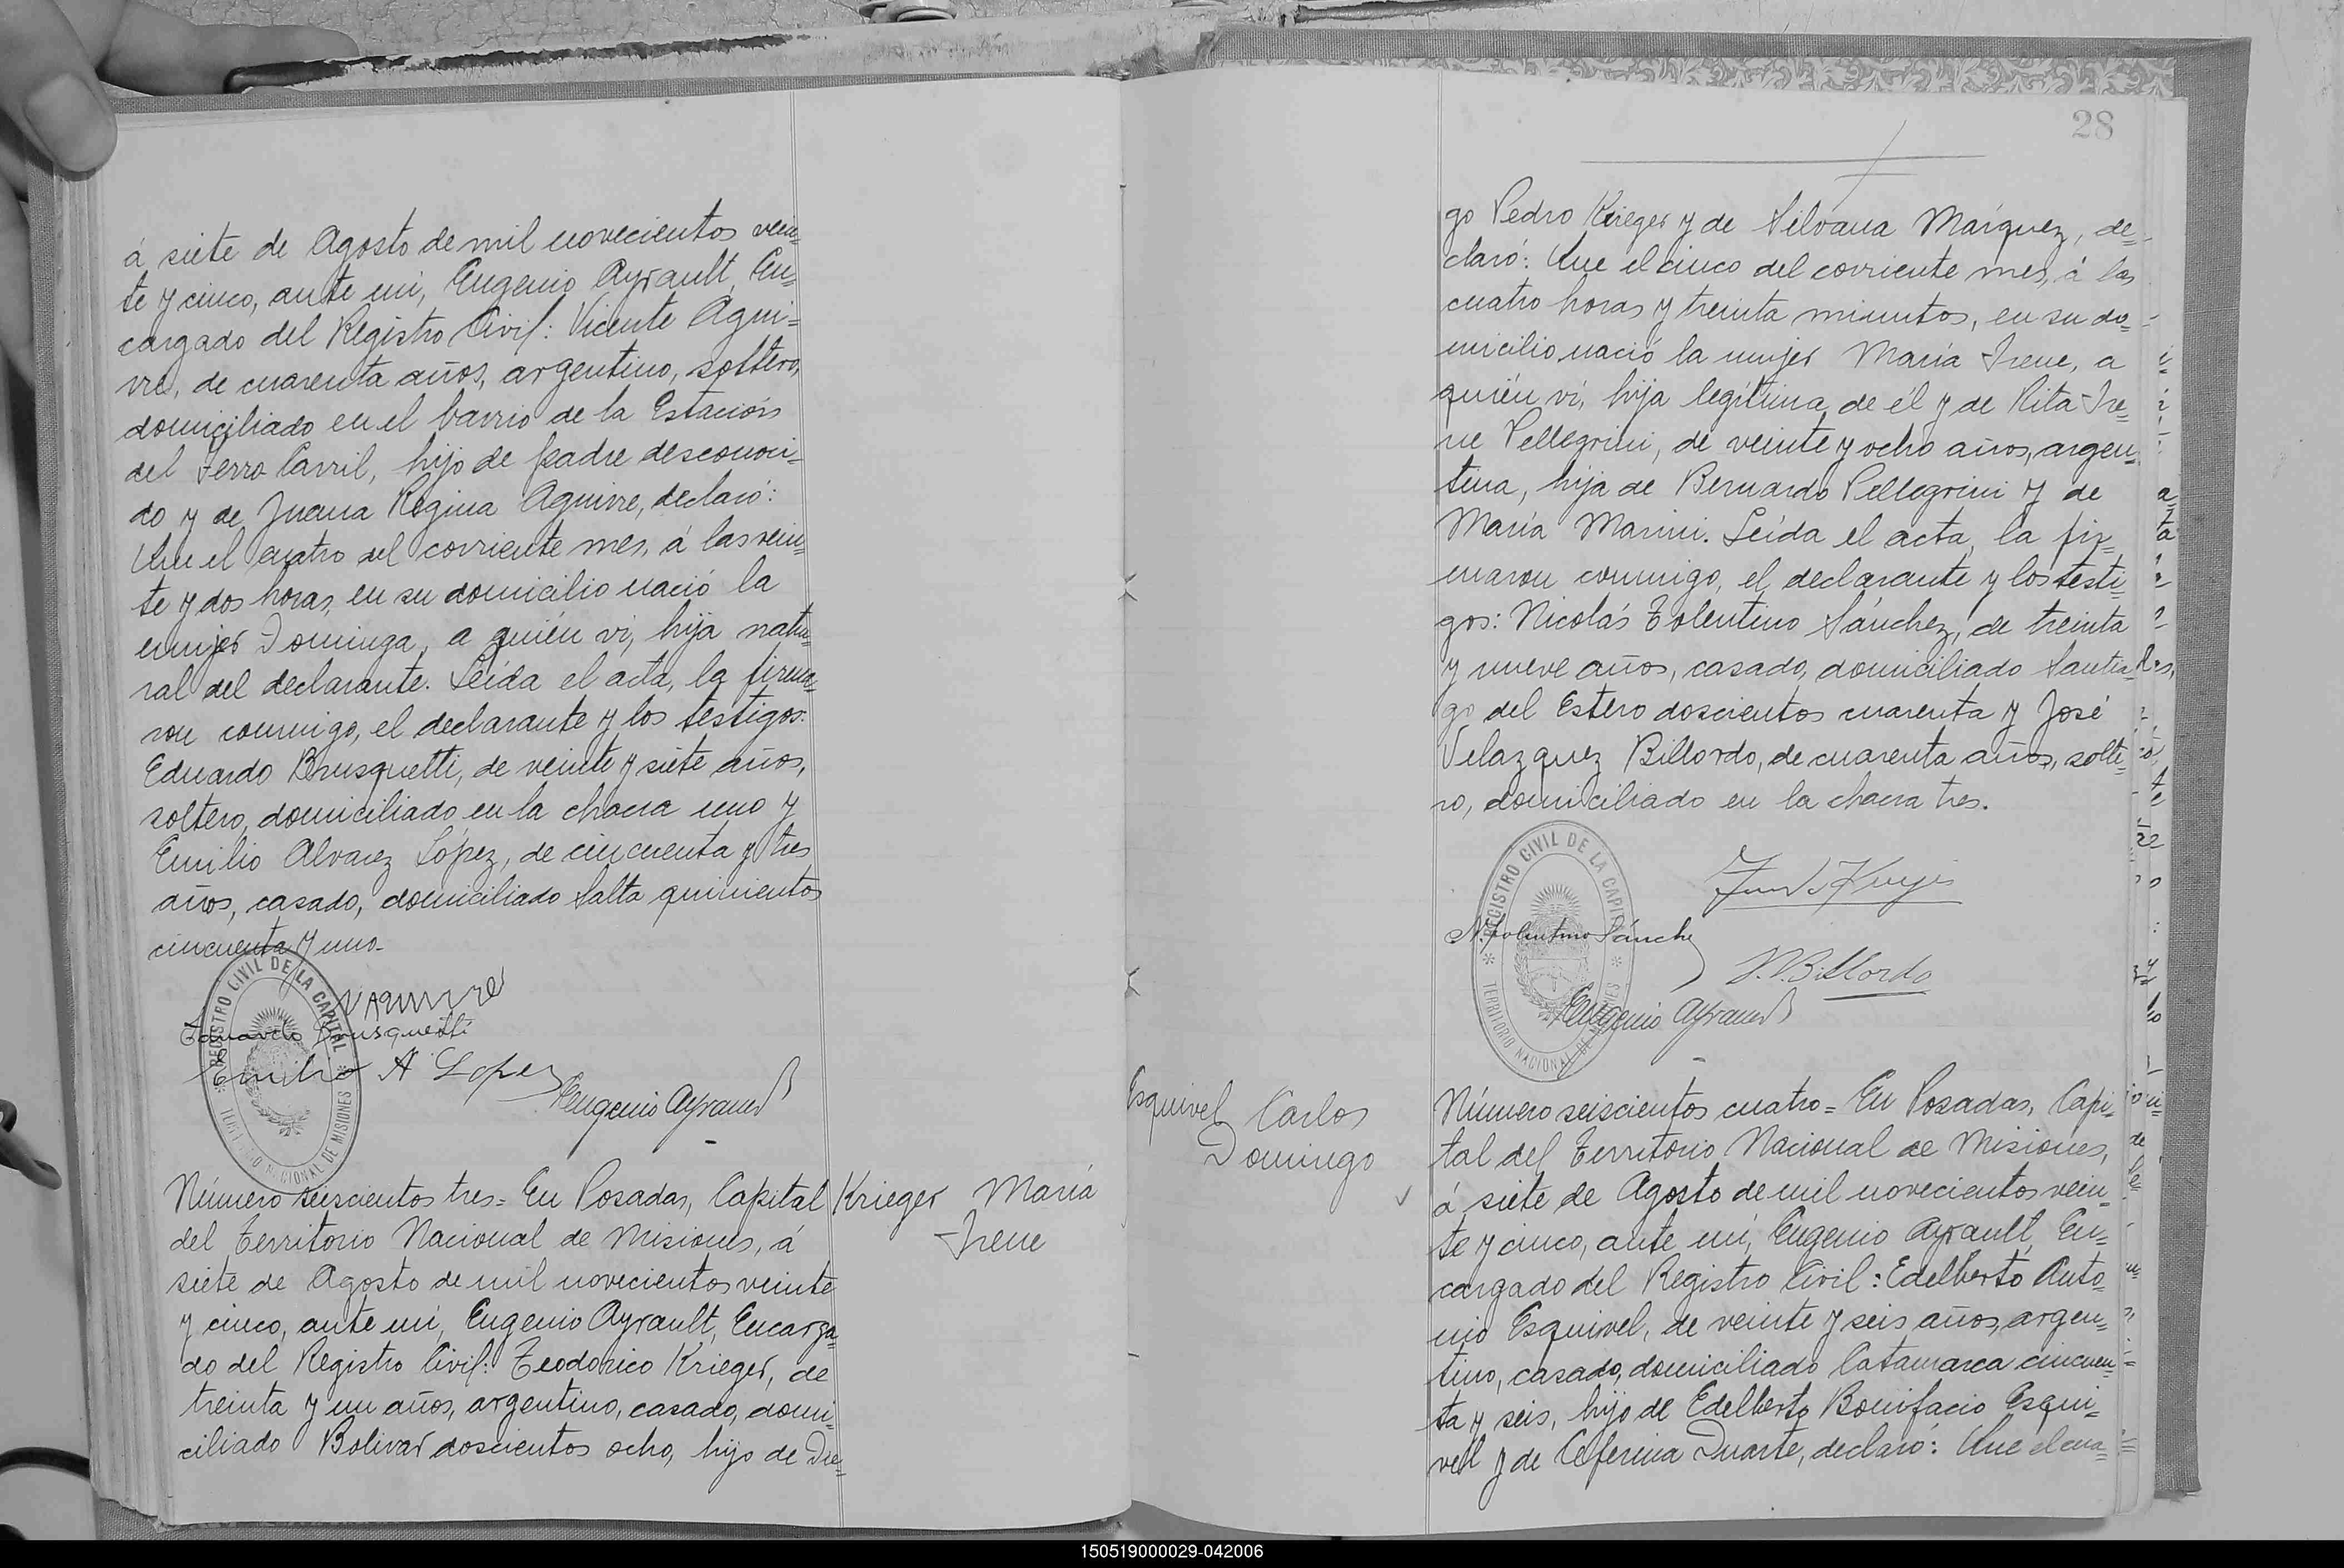 á siete de Agosto de mil novecientos vein=
te y cinco, ante mi, Eugenio Ayrault, En=
cargado del Registro Civil: Vicente Agui=
rre, de cuarenta años, argentino, soltero,
domiciliado en el barrio de la Estación
del Ferro Carril, hijo de padre desconoci=
do y de Juana Regina Aguirre, declaró:
Que el cuatro del corriente mes, á las vein=
te y dos horas, en su domicilio nació la
mujer Dominga, a quién vi, hija natu=
ral del declarante. Leída el acta, la firma=
ron conmigo, el declarante y los testigos:
Eduardo Brusquetti, de veinte y siete años,
soltero, domiciliado en la chacra uno y
Emilio Alvarez López, de cincuenta y tres
años, casado, domiciliado Salta quinientos
cincuenta y uno.
REGISTRO CIVIL DE LA CAPITAL
TERRITORIO NACIONAL DE MISIONES
V Aguirre
Eduardo Brusquetti
Emilio A Lopez
Eugenio Ayrault
Número seiscientos tres= En Posadas, Capital
del Territorio Nacional de Misiones, á
siete de Agosto de mil novecientos veinte
y cinco, ante mi, Eugenio Ayrault, Encarga=
do del Registro Civil: Teodorico Krieger, de
treinta y un años, argentino, casado, domi=
ciliado Bolivar doscientos ocho, hijo de Die=
Krieger María
Irene
28
go Pedro Krieger y de Silvana Márquez, de=
claró: Que el cinco del corriente mes, á las
cuatro horas y treinta minutos, en su do=
micilio nació la mujer María Irene, a
quién vi, hija legítima de él y de Rita Ire=
ne Pellegrini, de veinte y ocho años, argen=
tina, hija de Bernardo Pellegrini y de
María Marini. Leída el acta, la fir=
maron conmigo, el declarante y los testi=
gos: Nicolás Tolentino Sánchez, de treinta
y nueve años, casado, domiciliado Santia=
go del Estero doscientos cuarenta y José
Velazquez Billordo, de cuarenta años, solte=
ro, domiciliado en la chacra tres.
REGISTRO CIVIL DE LA CAPITAL
TERRITORIO NACIONAL DE MISIONES
N. Tolentino Sánchez
J. V. Billordo
Eugenio Ayrault
Esquivel Carlos
Domingo
Número seiscientos cuatro= En Posadas, Capi=
tal del Territorio Nacional de Misiones,
á siete de Agosto de mil novecientos vein=
te y cinco, ante mi, Eugenio Ayrault, En=
cargado del Registro Civil: Edelberto Anto=
nio Esquivel, de veinte y seis años, argen=
tino, casado, domiciliado Catamarca cincuen=
ta y seis, hijo de Edelberto Bonifacio Esqui=
vel y de Ceferina Duarte, declaró: Que el cua=
150519000029-042006